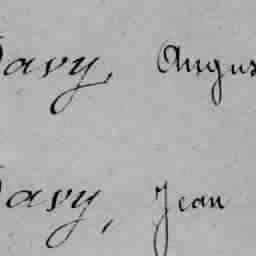 Davy, Augus
Davy, Jean